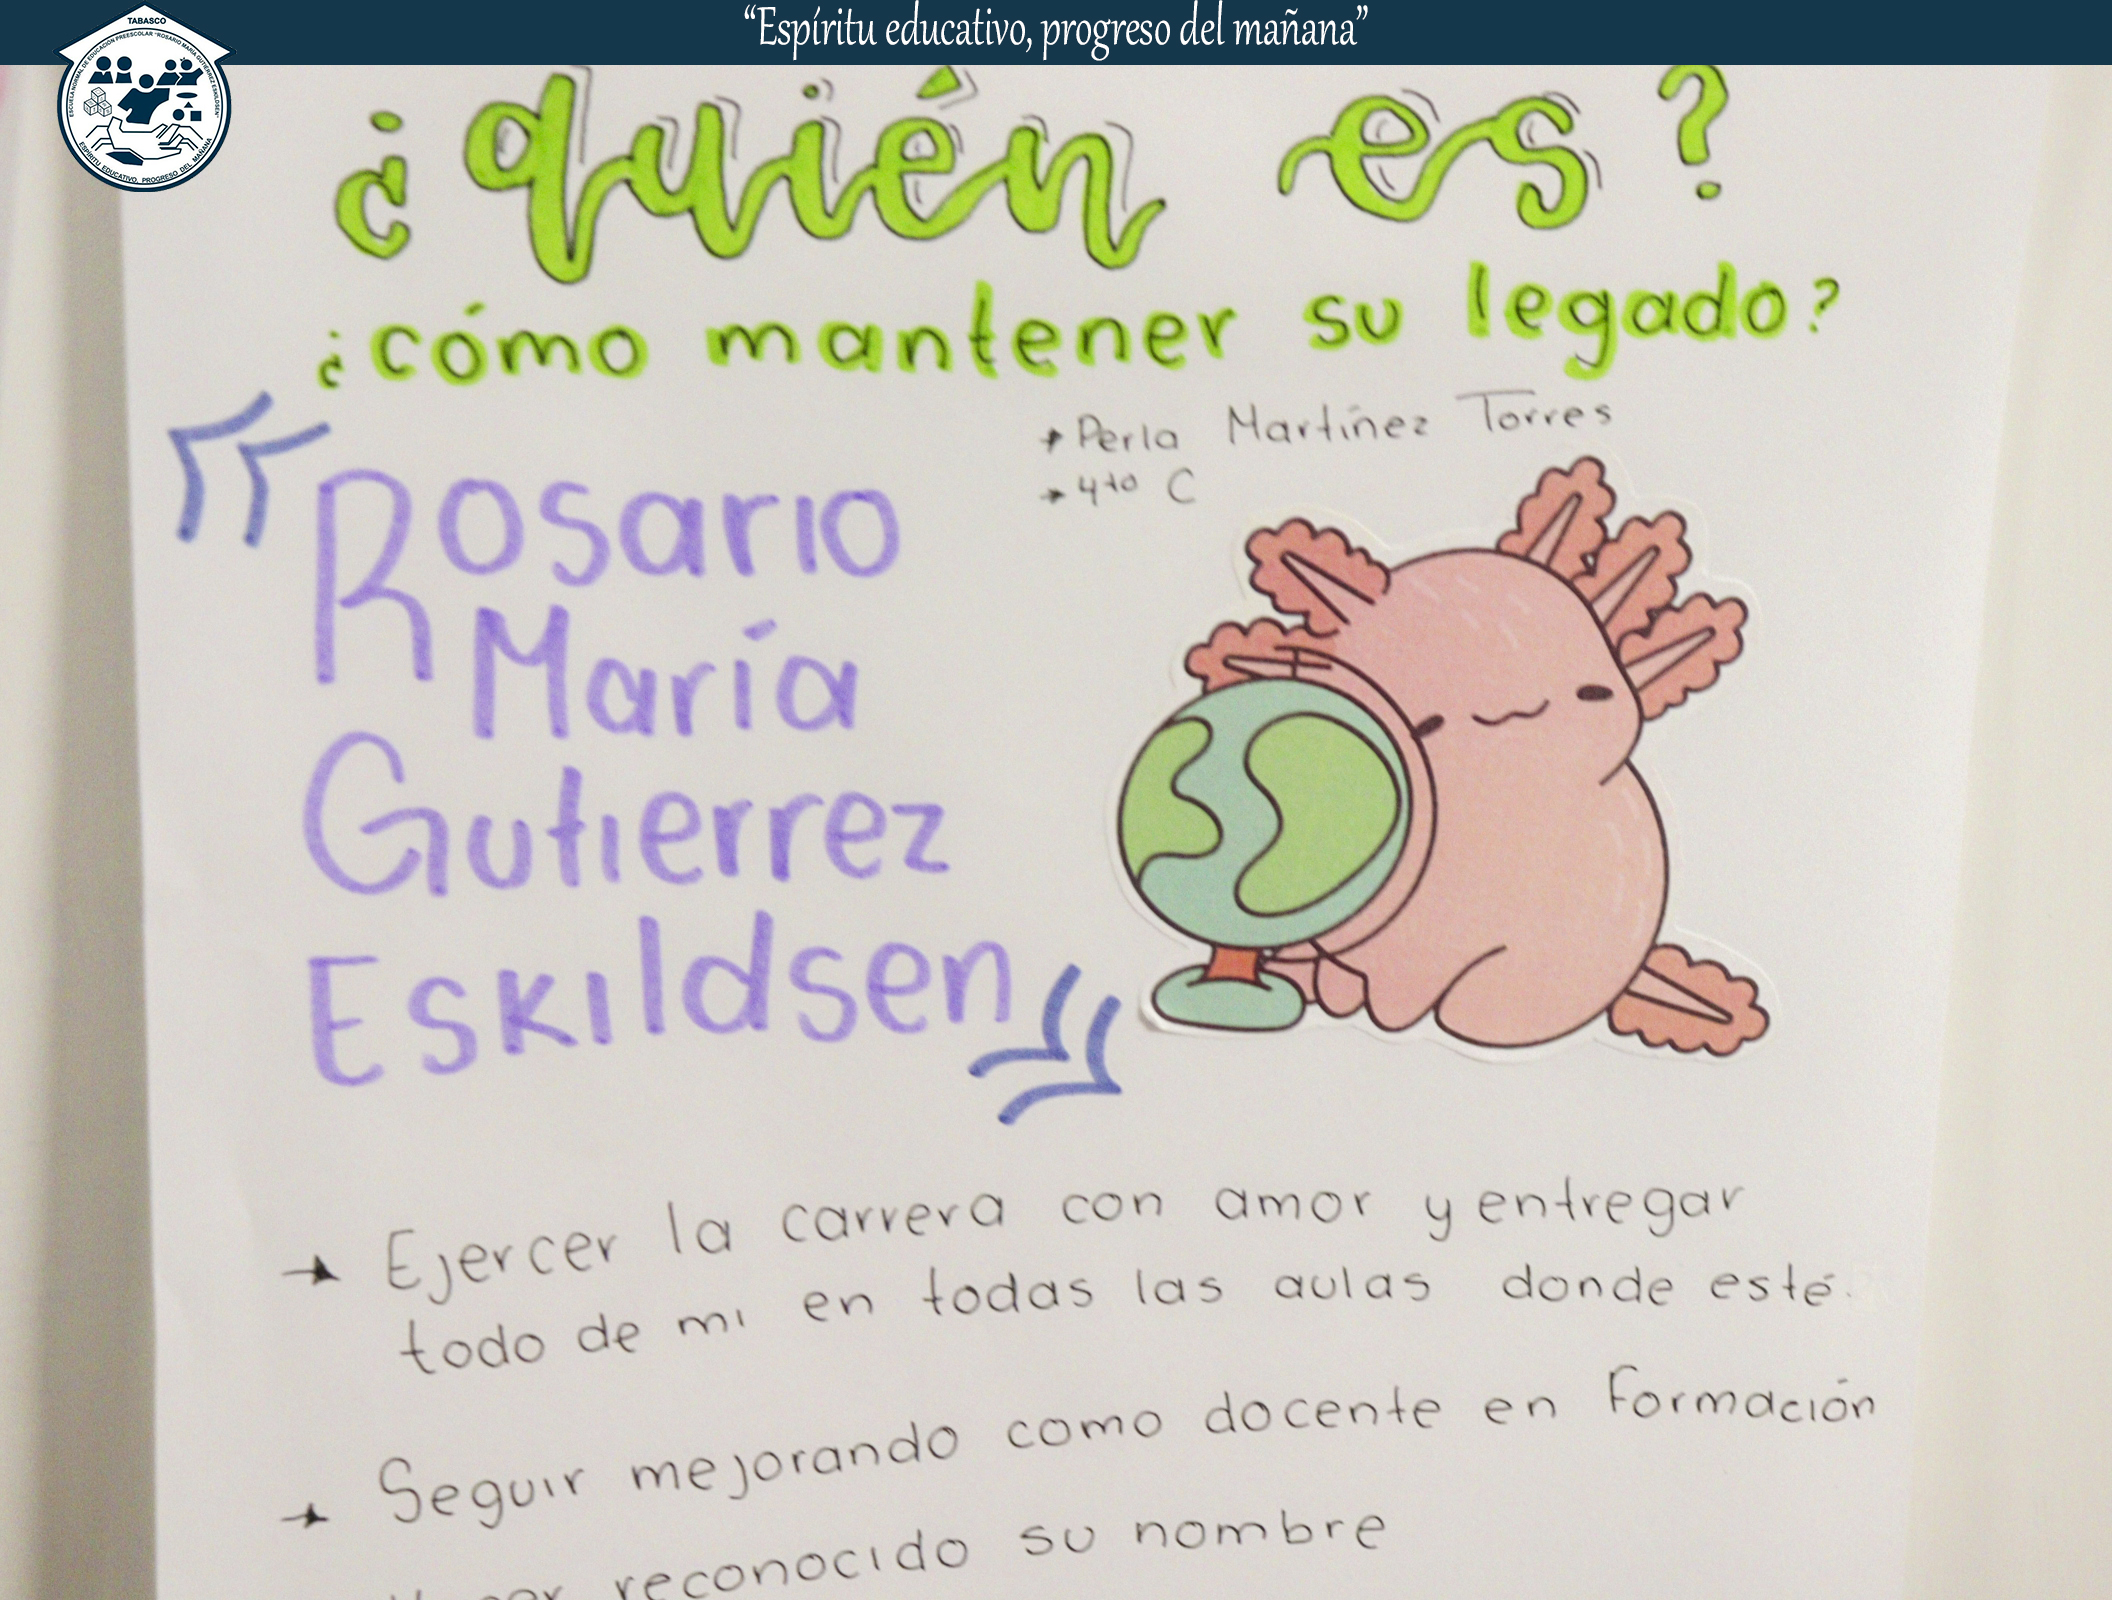 “Espíritu educativo, progreso del mañana”
TABASCO
ESCUELA NORMAL DE EDUCACIÓN PREESCOLAR "ROSARIO MARÍA GUTIÉRREZ ESKILDSEN"
ESPÍRITU EDUCATIVO, PROGRESO DEL MAÑANA
¿quién es?
¿cómo mantener su legado?
Perla Martínez Torres
4to C
Rosario
María
Gutierrez
Eskildsen
Ejercer la carrera con amor y entregar
todo de mi en todas las aulas donde esté.
Seguir mejorando como docente en Formación
reconocido su nombre